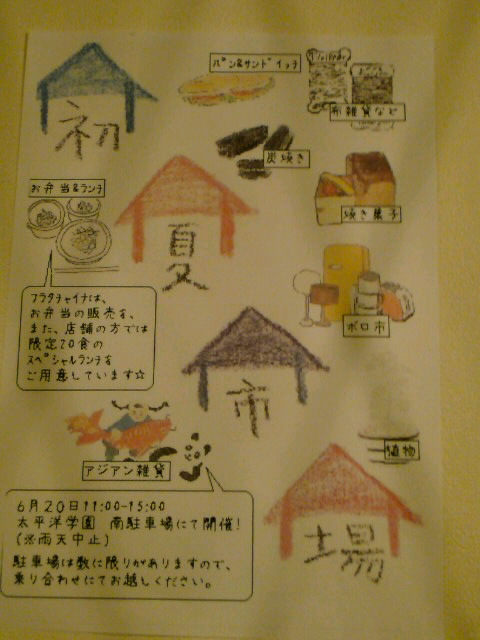 初
パン&サンドイッチ
布雑貨など
炭焼き
お弁当&ランチ
焼き菓子
夏
プラタチャイナは、
お弁当の販売を、
また、店舗の方では
限定20食の
スペシャルランチを
ご用意しています☆
ボロ市
市
植物
アジアン雑貨
6月20日11:00-15:00
太平洋学園 南駐車場にて開催!
(※雨天中止)
駐車場は数に限りがありますので、
乗り合わせにてお越しください。
場